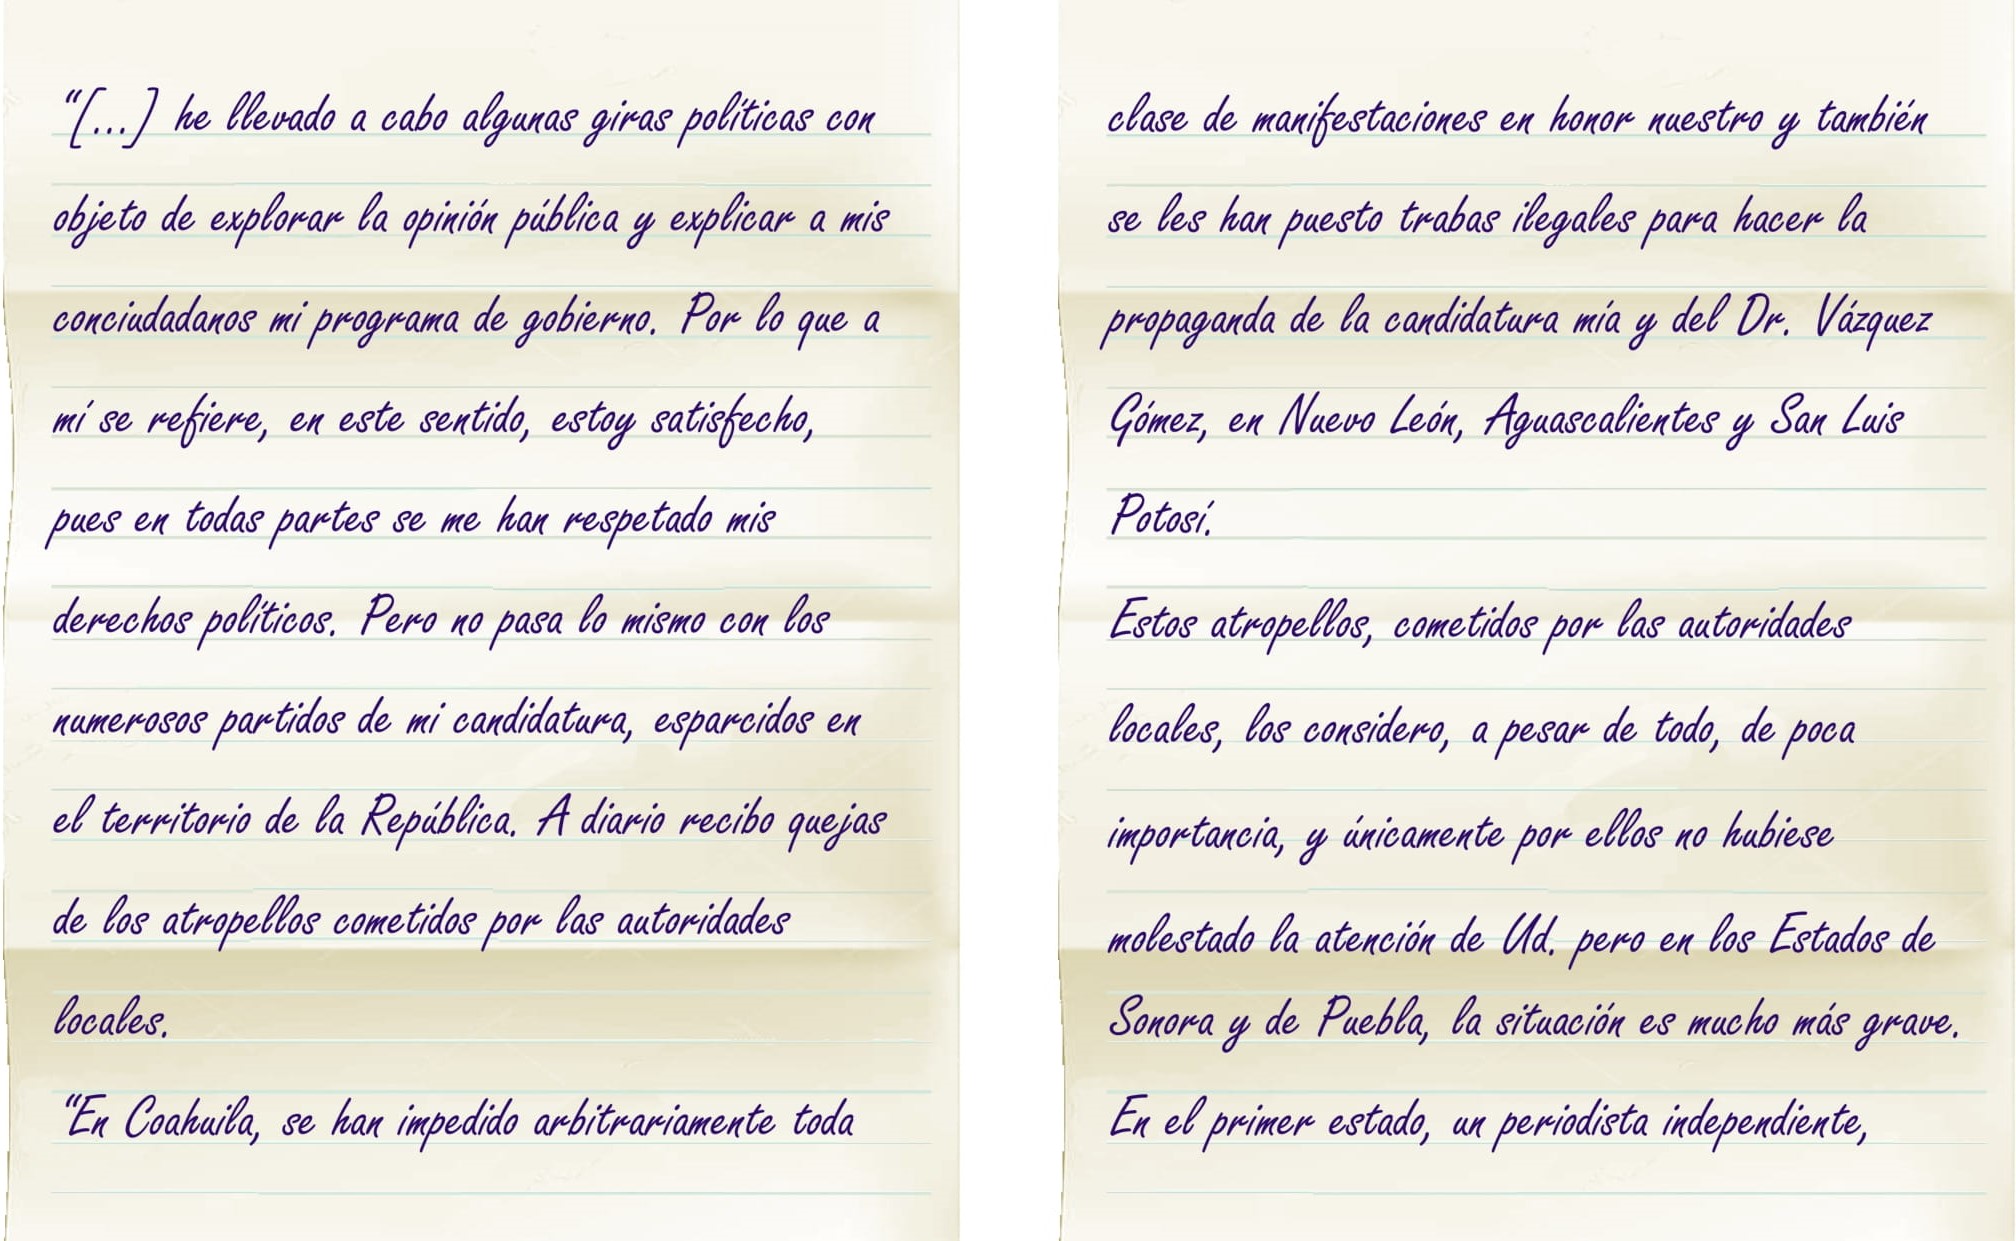 “[...] he llevado a cabo algunas giras políticas con
objeto de explorar la opinión pública y explicar a mis
conciudadanos mi programa de gobierno. Por lo que a
mí se refiere, en este sentido, estoy satisfecho,
pues en todas partes se me han respetado mis
derechos políticos. Pero no pasa lo mismo con los
numerosos partidos de mi candidatura, esparcidos en
el territorio de la República. A diario recibo quejas
de los atropellos cometidos por las autoridades
locales.
“En Coahuila, se han impedido arbitrariamente toda
clase de manifestaciones en honor nuestro y también
se les han puesto trabas ilegales para hacer la
propaganda de la candidatura mía y del Dr. Vázquez
Gómez, en Nuevo León, Aguascalientes y San Luis
Potosí.
Estos atropellos, cometidos por las autoridades
locales, los considero, a pesar de todo, de poca
importancia, y únicamente por ellos no hubiese
molestado la atención de Ud. pero en los Estados de
Sonora y de Puebla, la situación es mucho más grave.
En el primer estado, un periodista independiente,